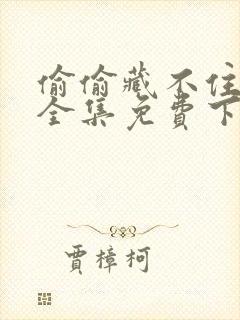 偷偷藏不住
全集免費下
賈樟柯